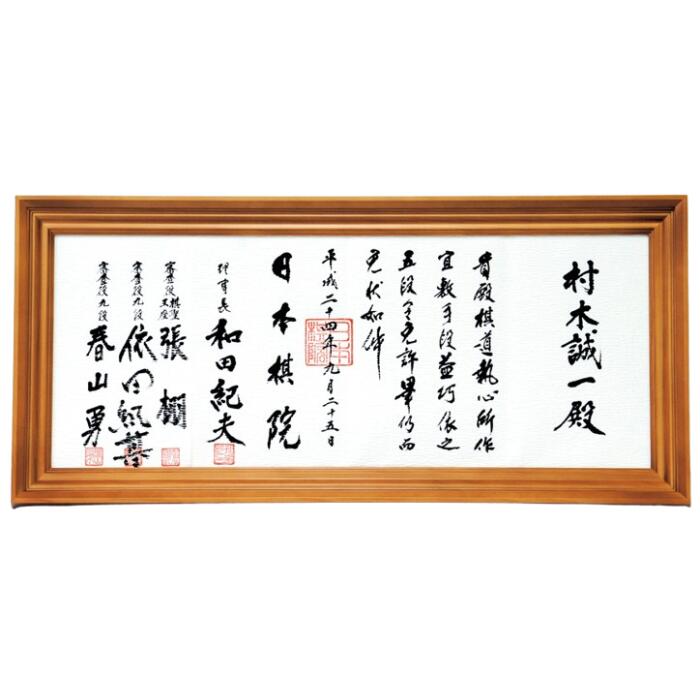 村木誠一殿
貴殿棋道執心所作
宜敷手段並巧依之
五段令免許畢仍而
免状如件
平成二十四年九月二十五日
日本棋院
理事長 和田紀夫
審査役 棋聖 王座 張栩
審査役九段 依田紀基
審査役九段 春山勇